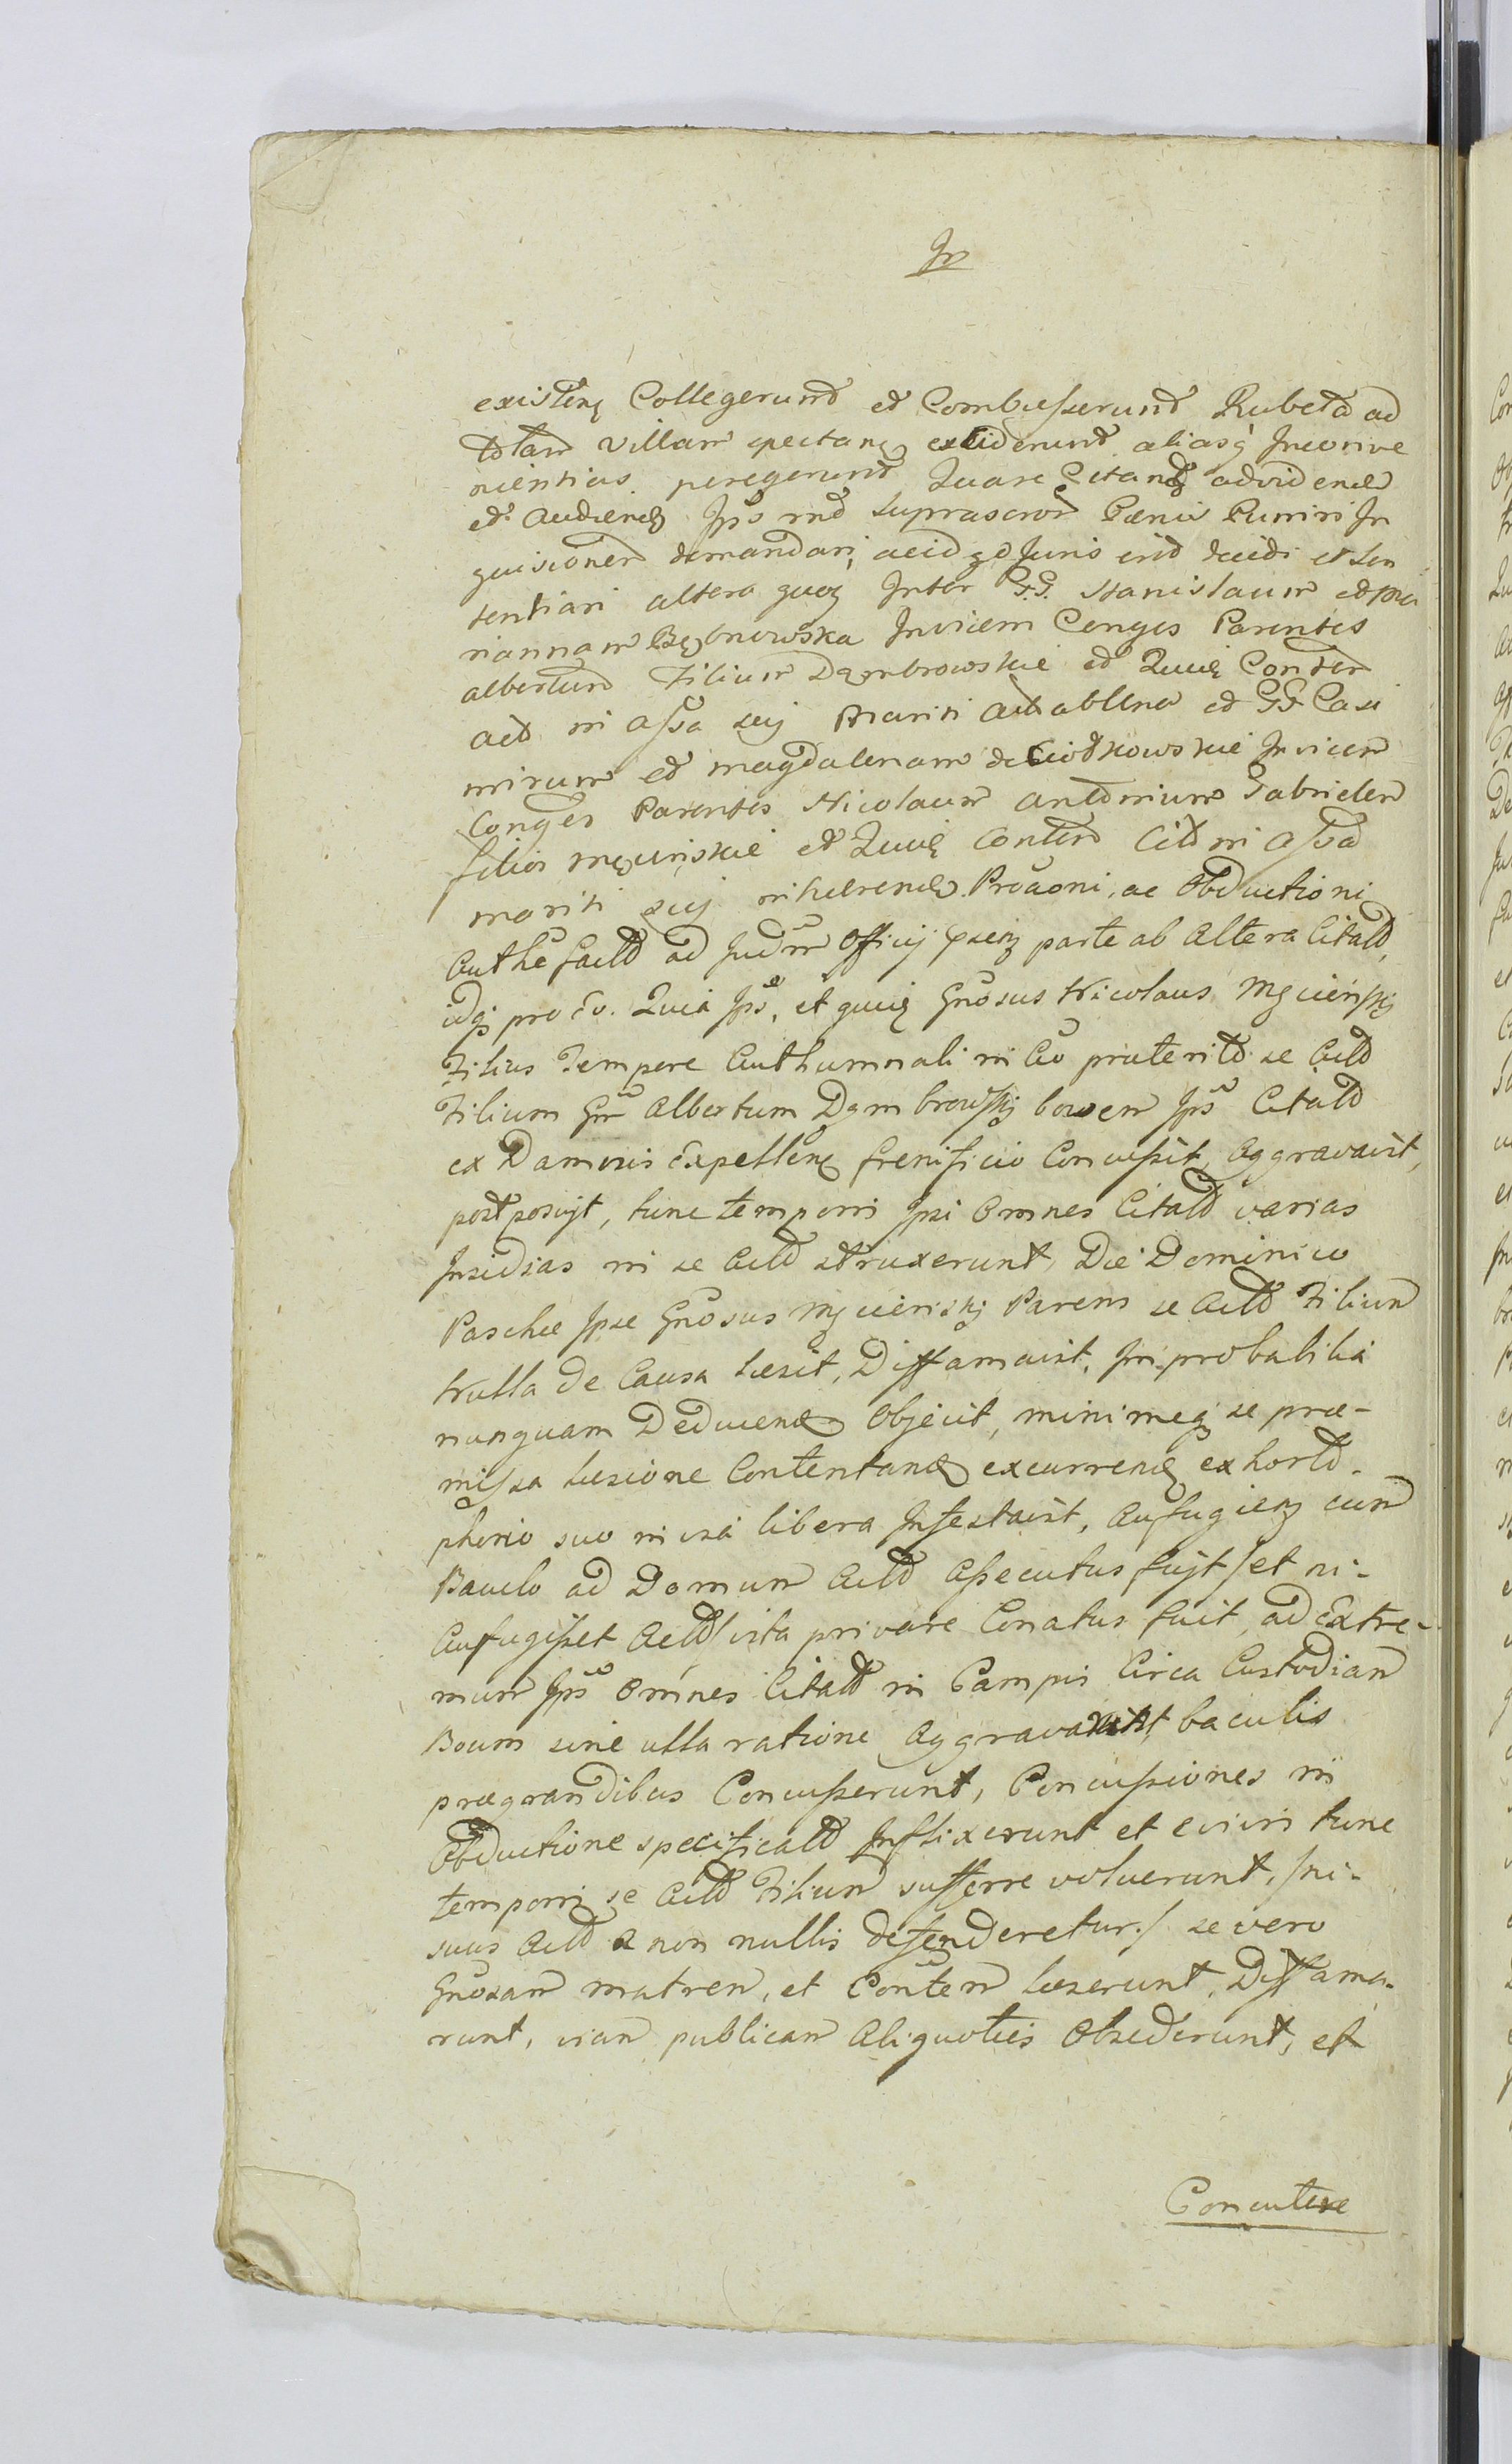 In
existen Collegerunt et Combusserunt Rubeta ad
totam villam spectan exciderunt aliasq Inconve
nientias peregerunt Quare Citand advidend
et Audiend Ipos suprascrod Penis Puniri In
quisitionem demandari, acid qd Juris erit decidi et Sen
tentiari altera quoq Inter G.G. Stanislaum et Ma
riannam Bębnowska Invicem Conges Parentes
albertum Filium Dąmbrowskie et Quię Conten
act in assa sui Mariti ab Una et GG Casi
mirum et Magdalenam de Invicem
Conges Parentes Nicolaum Antonium Gabrielem
filios Męcinskie et Quię Conten Cit in assa
mariti sui inhaeren Proaoni, ac Obductioni
Authe factt ad Officij parte ab Altera Citatt,
idq pro Eo. Quia Ips, et quię Gnosus Nicolaus Męcińskj
Filius Tempore Authumnali in Ao praeterito se Actt
Filium Gm Albertum Dąmbrowskj bovem Ips Citatt
ex Damnis Expellen frenificio Concussit, Aggravavit,
postposuyt, tunc temporis Ipsi Omnes Citatt varias
Insidias in se Actt struxerunt, Die Dominico
Paschae Ipse Gnosus Męcierisky Parens se Actt Filium
Nulla de Causa laesit, Diffamavit, Improbabilia
nunquam Deducend Objecit, minimeq se prae-
missa laesione Contentand excurrend exhortt-
phorio suo in via libera Infestavit, Aufugien cum
Baculo ad Domum Actt Assecutus fuyt /et ni-
Aufugisset Actt/ vita privare Conatus fuit, ad Extre-
mum Ips Omnes Citatt in Campis Circa Custodiam
Boum sine ulla ratione Aggravarunt, baculis
praegrandibus Concusserunt, Concussiones in
Obductione specificatt Inflixerunt et e vivis tunc
temporis se Actt Filium sufferre voluerunt, /ni-
suus Actt a non nullis defenderetur./ se vero
Gnosam matrem, et Conten laeserunt, Diffama-
runt, viam publicam Aliquoties Obsederunt, et
Concutere